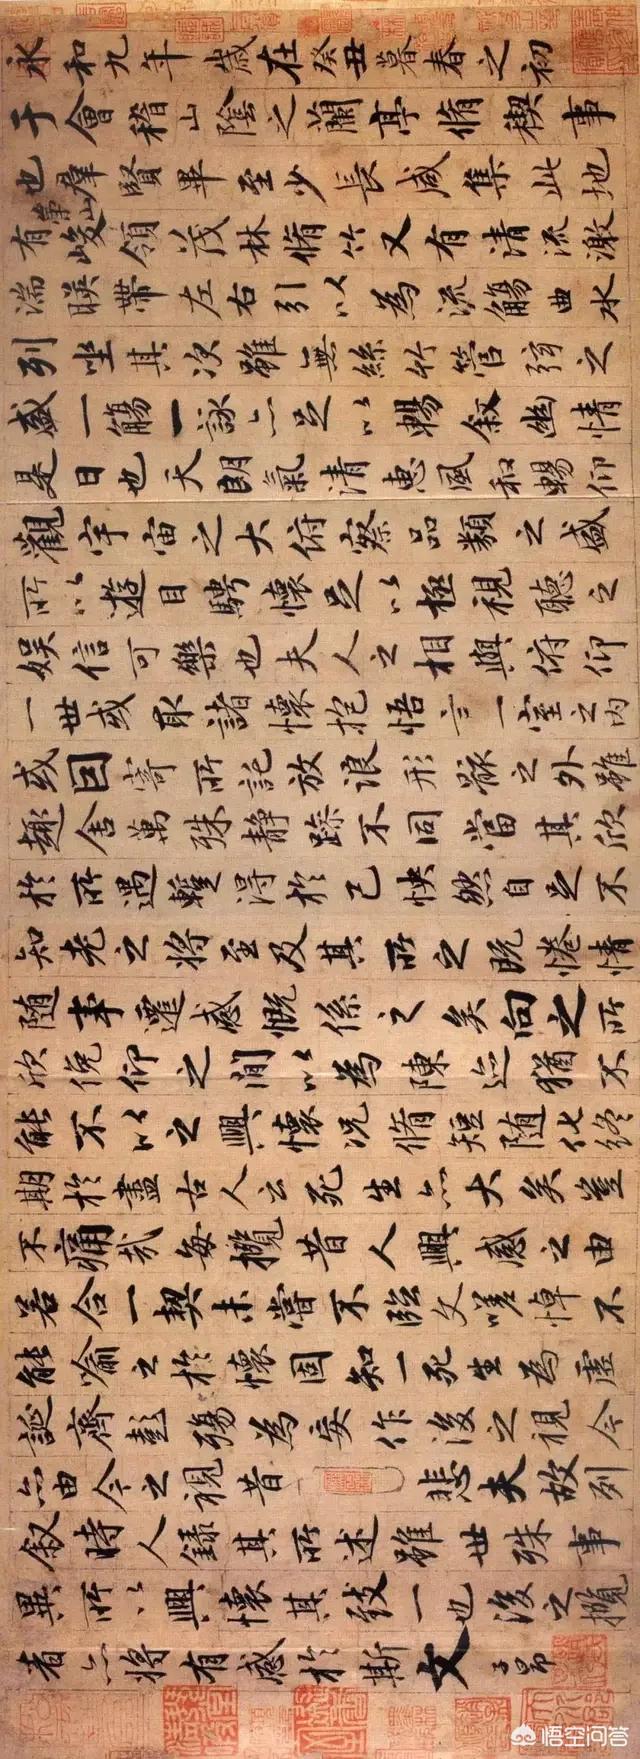 永和九年歲在癸丑暮春之初
于會稽山陰之蘭亭脩稧事
也羣賢畢至少長咸集此地
有崇山峻領茂林脩竹又有清流激
湍暎帶左右引以為流觴曲水
列坐其次雖無絲竹管弦之
盛一觴一詠亦足以暢敘幽情
是日也天朗氣清惠風和暢仰
觀宇宙之大俯察品類之盛
所以遊目騁懷足以極視聽之
娛信可樂也夫人之相與俯仰
一世或取諸懷抱悟言一室之內
或因寄所託放浪形骸之外雖
趣舍萬殊靜躁不同當其欣
於所遇暫得於己怏然自足不
知老之將至及其所之既惓情
隨事遷感慨係之矣向之所
欣俛仰之間以為陳迹猶不
能不以之興懷況脩短隨化終
期於盡古人云死生亦大矣豈
不痛哉每攬昔人興感之由
若合一契未嘗不臨文嗟悼不
能喻之於懷固知一死生為虛
誕齊彭殤為妄作後之視今
亦由今之視昔悲夫故列
敘時人錄其所述雖世殊事
異所以興懷其致一也後之攬
者亦將有感於斯文 子昂
悟空问答